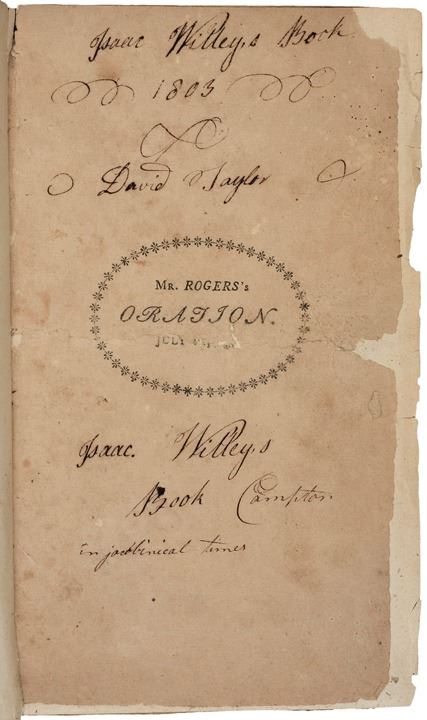 Isaac Willey,s Book
1803
David Taylor
MR. ROGERS's
ORATION.
JULY 4TH,
Isaac. Willey,s
Book Campton
in jacobinical times